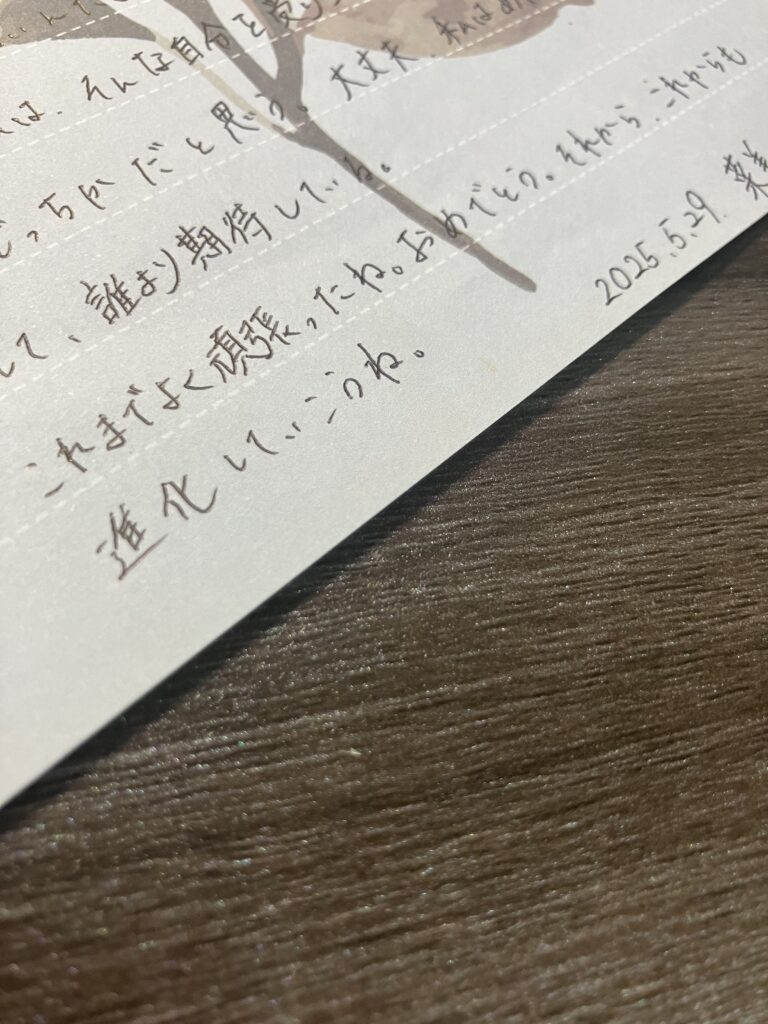 は、そんな自分を受け
どっちかだと思う。大丈夫、私は
して、誰より期待している。
これまでよく頑張ったね。おめでとう。それから、これからも
進化していこうね。
2025.5.29.